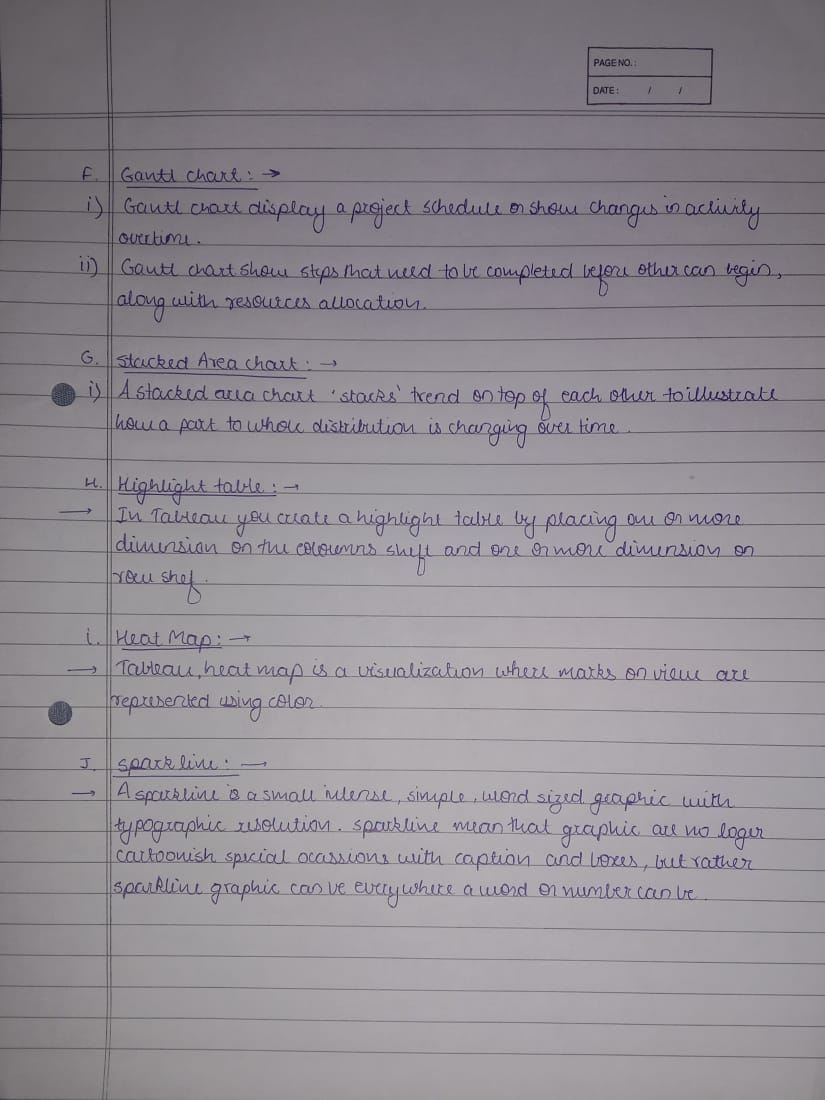 PAGE NO.:
DATE: / /
F. Gantt chart : →
i) Gantt chart display a project schedule or show changes in activity
overtime.
ii) Gantt chart show steps that need to be completed before other can begin,
along with resources allocation.
G. Stacked Area chart : →
i) A stacked area chart 'stacks' trend on top of each other to illustrate
how a part to whole distribution is changing over time.
H. Highlight table : →
→ In Tableau you create a highlight table by placing one or more
dimension on the coloumns shelf and one or more dimension on
row shef.
i. Heat Map : →
→ Tableau, heat map is a visualization where marks on view are
represented using color.
J. sparkline : →
→ A sparkline is a small intense, simple, word sized graphic with
typographic resolution. sparkline mean that graphic are no loger
cartoonish special ocassions with caption and boxes, but rather
sparkline graphic can be everywhere a word or number can be.